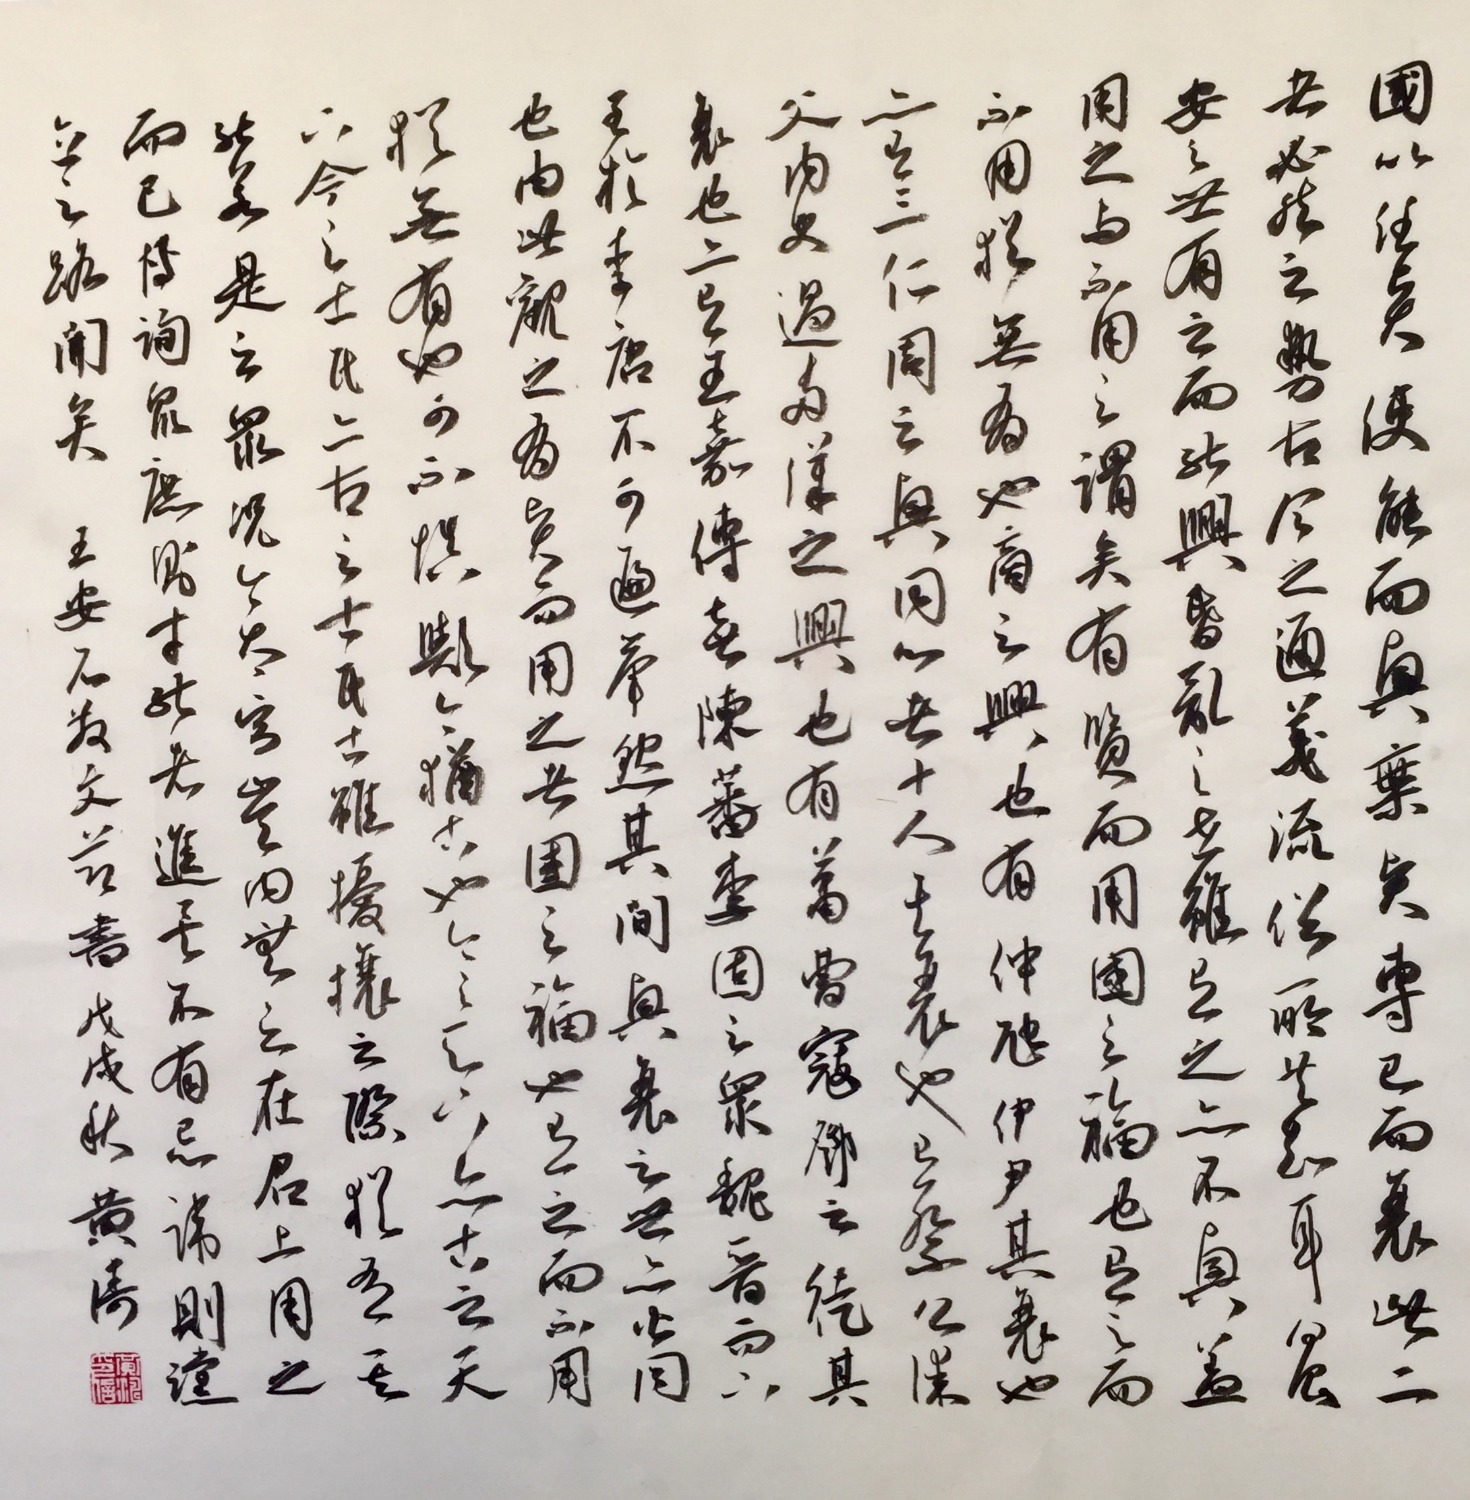 國以任賢使能而興棄賢專己而衰此二
者必然之勢古今之通義流俗所共知耳何治
安之世有之而能興昏亂之世雖有之亦不興蓋
用之與不用之謂矣有賢而用國之福也有之而
不用猶無有也商之興也有仲虺伊尹其衰也
亦有三仁周之興同心者十人其衰也有祭公謀
父內史過兩漢之興也有蕭曹寇鄧之徒其
衰也亦有王嘉傅喜陳蕃李固之眾魏晉而下
至於李唐不可遍舉然其間興衰之世亦皆同
也由此觀之有賢而用之者國之福也有之而不用
猶無有也可不慎歟今猶古也今之天下亦古之天
下今之士民亦古之士民古雖擾攘之際猶有
能若是之眾況今太寧豈曰無之在君上用之
而已博詢眾庶則才能者進矣不有忌諱則讜
直之路開矣 王安石散文節書 戊戌秋 黃濤